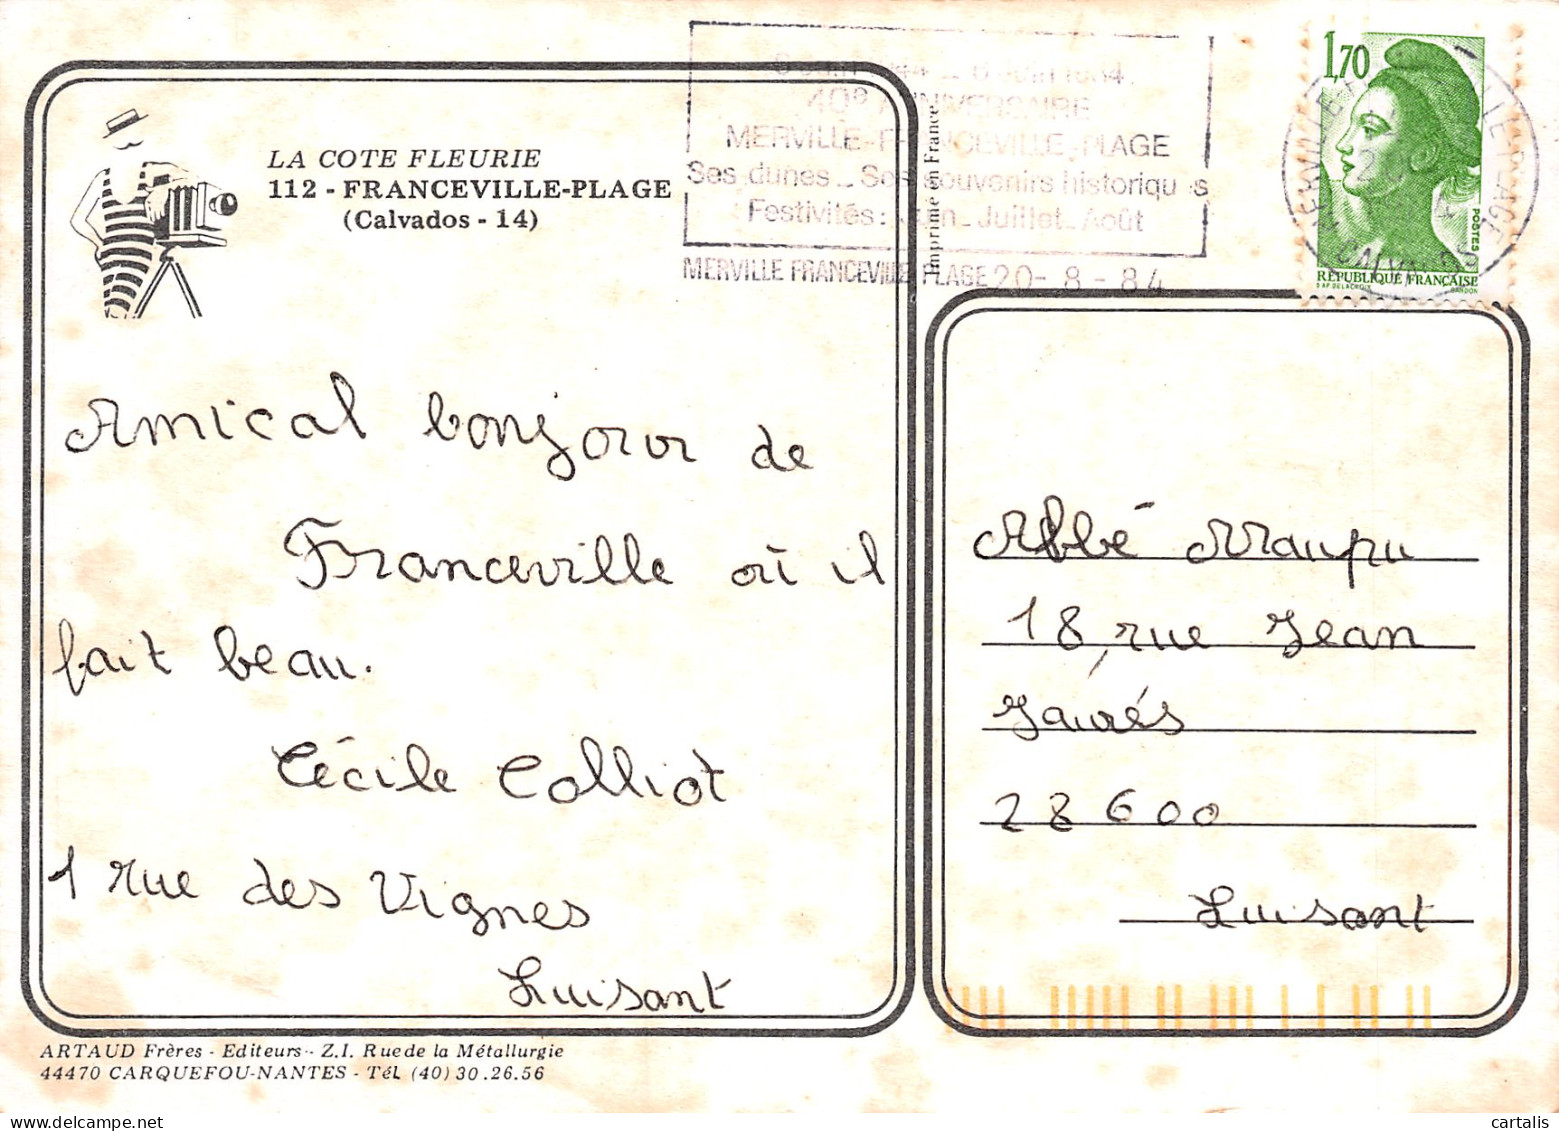 LA COTE FLEURIE
112 - FRANCEVILLE-PLAGE
(Calvados - 14)
6 Juin 1944 - 6 Juin 1984
40e ANNIVERSAIRE
MERVILLE-FRANCEVILLE-PLAGE
Ses dunes - Ses souvenirs historiques
Festivités: Juin - Juillet - Août
MERVILLE FRANCEVILLE PLAGE 20 - 8 - 84
Imprimé en France
1,70
POSTES
RÉPUBLIQUE FRANÇAISE
D'AP. DELACROIX GANDON
Amical bonjour de
Franceville où il
fait beau.
Cécile Colliot
1 rue des Vignes
Luisant
Abbé Maupu
18, rue Jean
Jaurés
28600
Luisant
ARTAUD Frères - Editeurs - Z.I. Rue de la Métallurgie
44470 CARQUEFOU-NANTES - Tél. (40) 30.26.56
cartalis